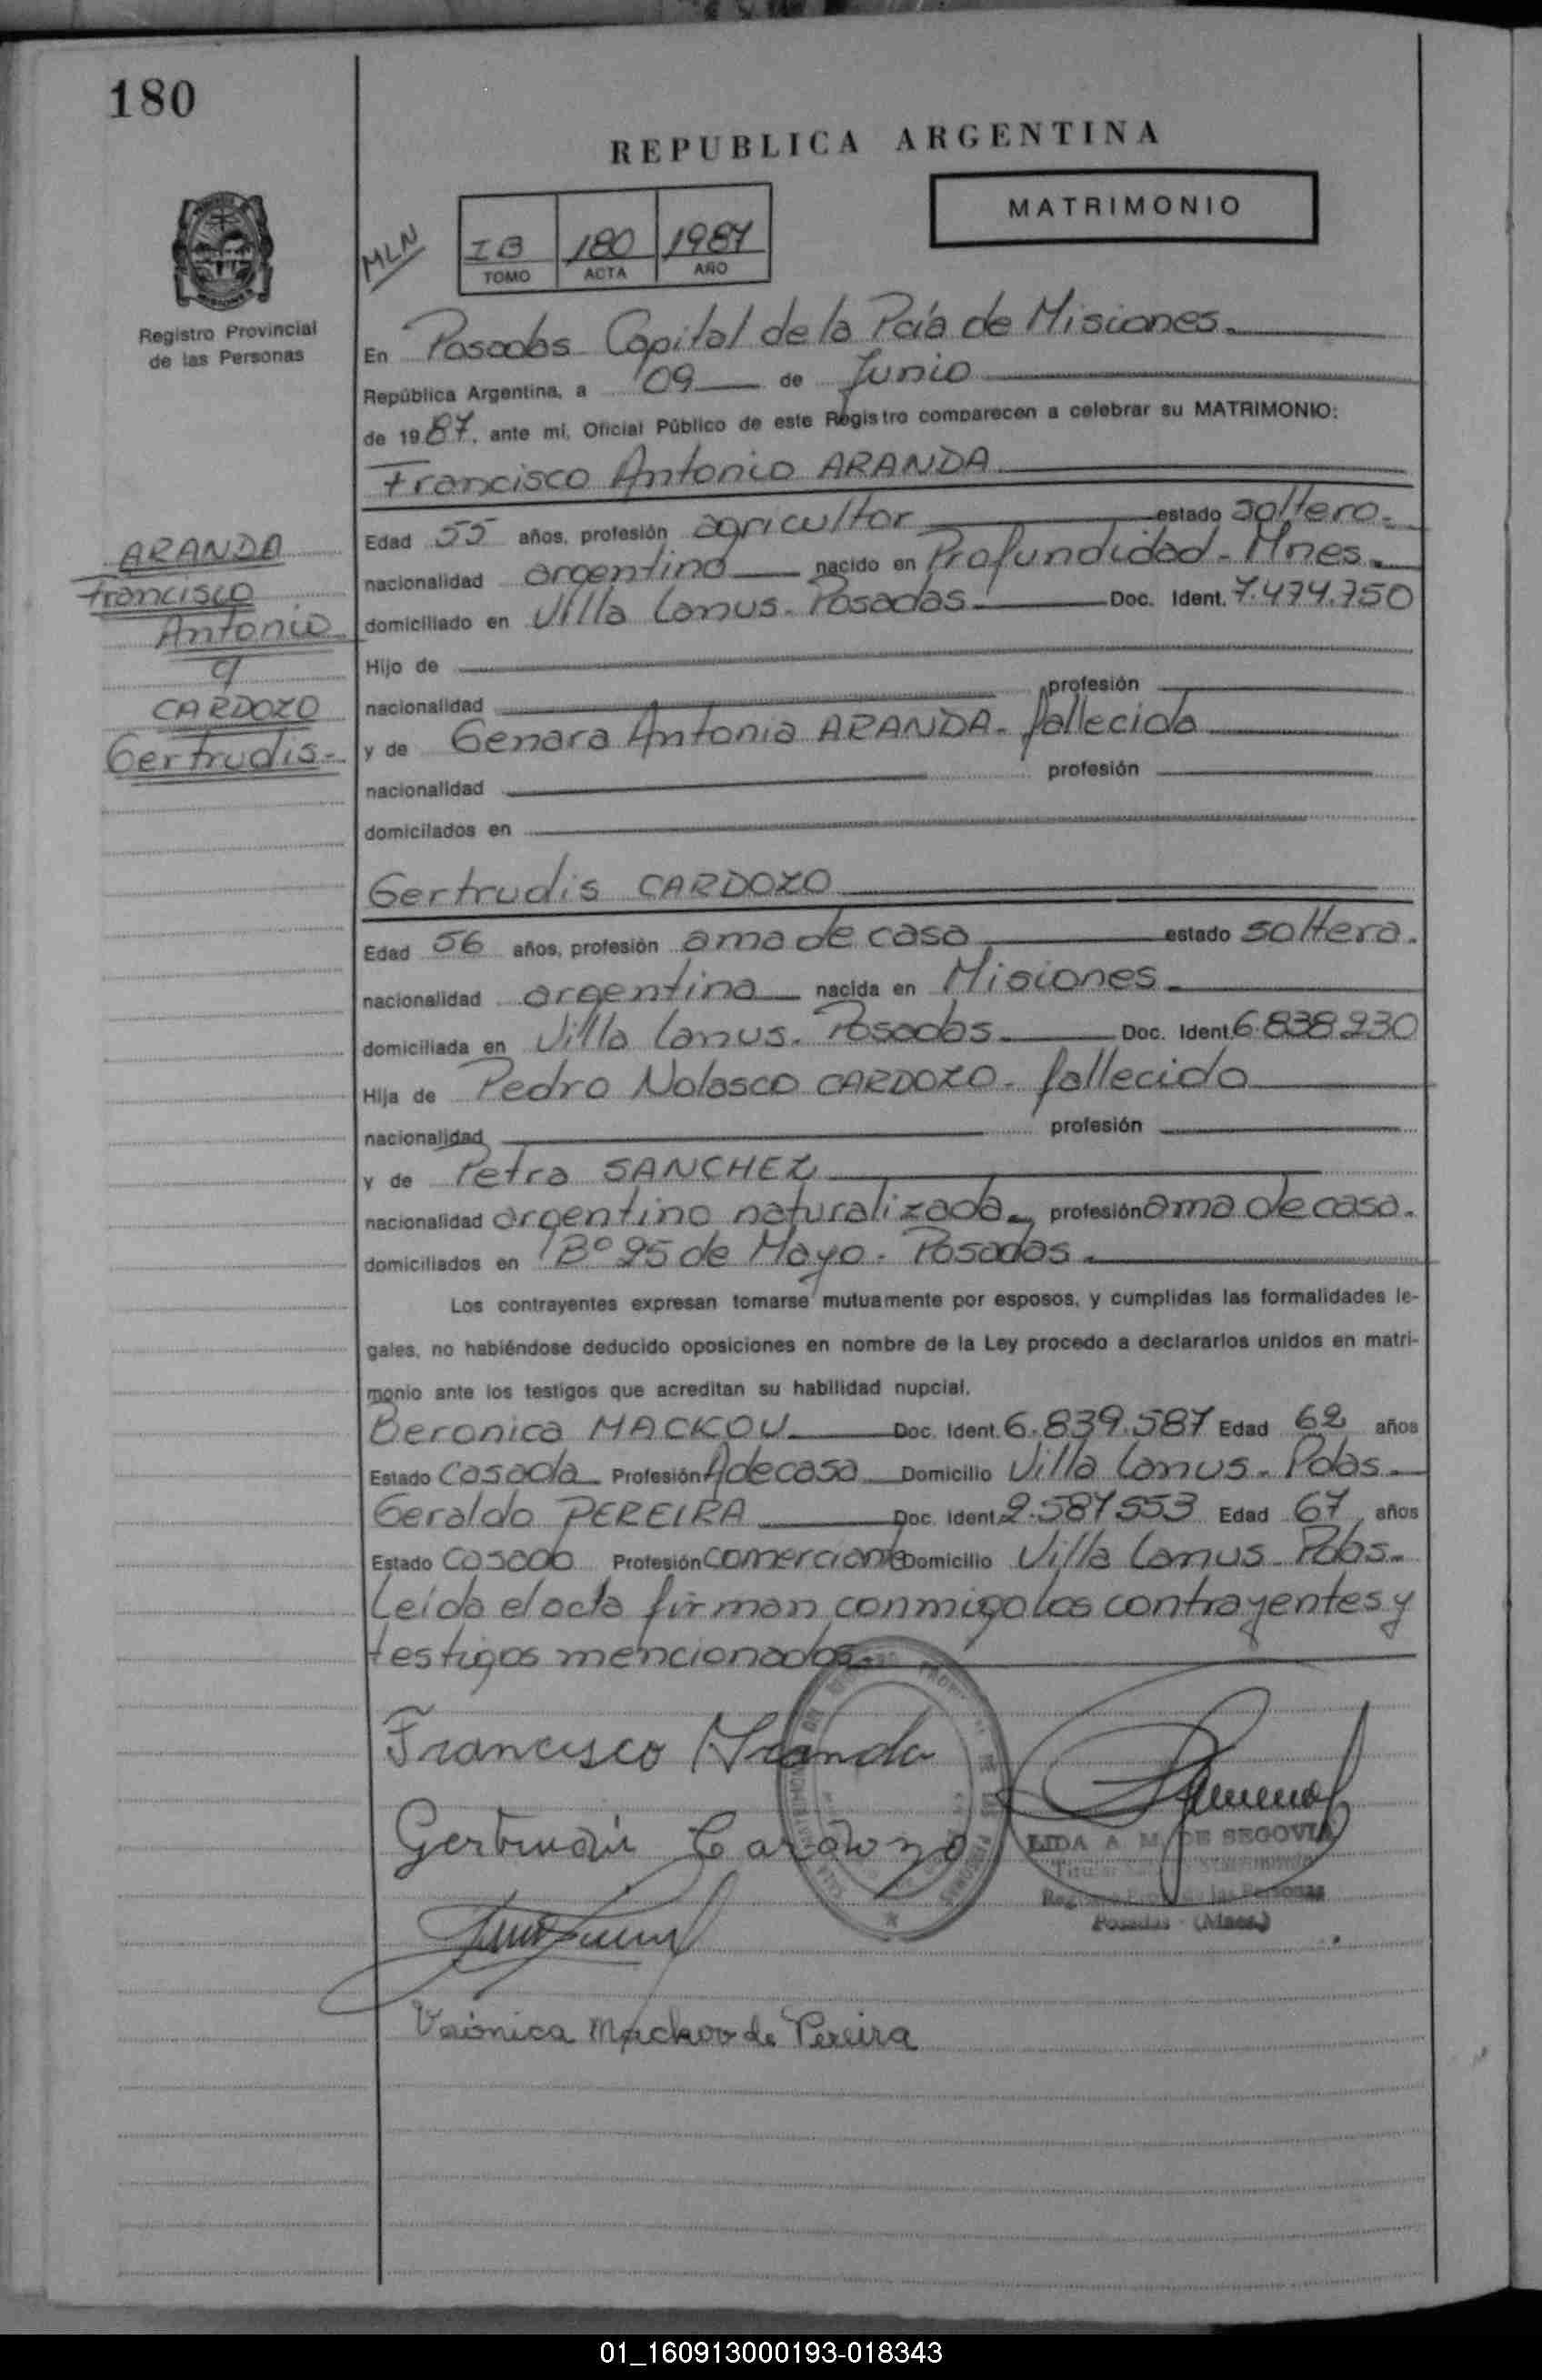 180
REPUBLICA ARGENTINA
MATRIMONIO
MLN
IB 180 1987
TOMO ACTA AÑO
Registro Provincial
de las Personas
En Posadas Capital de la Pcia de Misiones
República Argentina, a 09 de Junio
de 1987, ante mi, Oficial Público de este Registro comparecen a celebrar su MATRIMONIO:
Francisco Antonio ARANDA
Edad 55 años, profesión agricultor estado soltero
nacionalidad argentino nacido en Profundidad - Mnes
domiciliado en Villa Lanus - Posadas Doc. Ident. 7.474.750
Hijo de
nacionalidad profesión
y de Genara Antonia ARANDA - fallecida
nacionalidad profesión
domicilados en
ARANDA
Francisco
Antonio
y
CARDOZO
Gertrudis
Gertrudis CARDOZO
Edad 56 años, profesión ama de casa estado soltera
nacionalidad argentina nacida en Misiones
domiciliada en Villa Lanus - Posadas Doc. Ident. 6.838.230
Hija de Pedro Nolasco CARDOZO - fallecido
nacionalidad profesión
y de Petra SANCHEZ
nacionalidad argentina naturalizada profesión ama de casa
domiciliados en Bº 25 de Mayo - Posadas
Los contrayentes expresan tomarse mutuamente por esposos, y cumplidas las formalidades le-
gales, no habiéndose deducido oposiciones en nombre de la Ley procedo a declararlos unidos en matri-
monio ante los testigos que acreditan su habilidad nupcial.
Beronica MACKOU Doc. Ident. 6.839.587 Edad 62 años
Estado casada Profesión Adecasa Domicilio Villa Lanus - Pdas
Geraldo PEREIRA Doc. Ident. 2.587.553 Edad 67 años
Estado casado Profesión comerciante Domicilio Villa Lanus - Pdas
Leída el acta firman conmigo los contrayentes y
testigos mencionados
Francisco Aranda
Gertrudis Cardozo
LIDA A. M. DE SEGOVIA
Titular
Registro Prov. de las Personas
Posadas - (Mnes.)
Verónica Mackov de Pereira
01_160913000193-018343